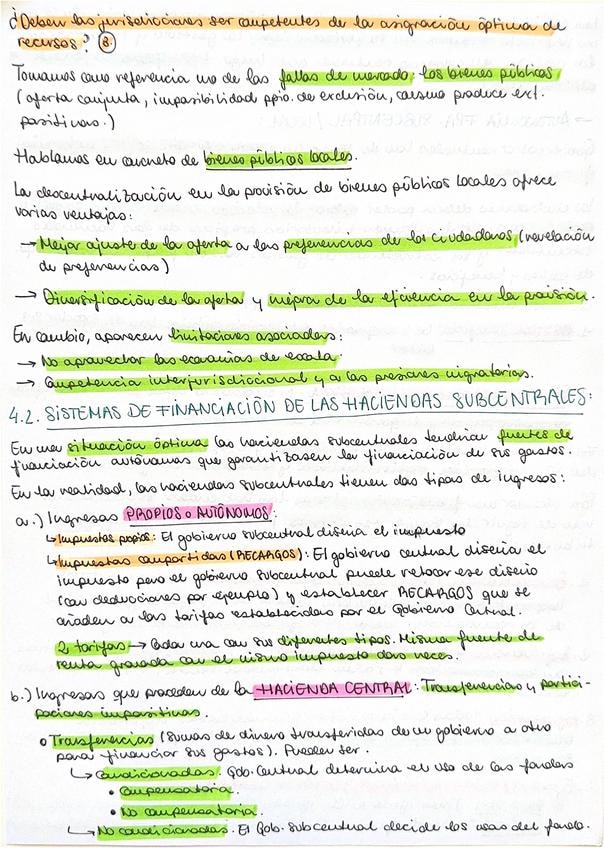 ¿Deben las jurisdicciones ser competentes de la asignación óptima de
recursos? (B.)
Tomamos como referencia uno de los fallos de mercado: los bienes públicos
(oferta conjunta, imposibilidad ppio. de exclusión, consumo produce ext.
positivas.)
Hablamos en concreto de bienes públicos locales.
La descentralización en la provisión de bienes públicos locales ofrece
varias ventajas:
→ Mejor ajuste de la oferta a las preferencias de los ciudadanos (revelación
de preferencias)
→ Diversificación de la oferta y mejora de la eficiencia en la provisión.
En cambio, aparecen limitaciones asociadas:
→ No aprovechar las economías de escala.
→ Competencia interjurisdiccional y a las presiones migratorias.
4.2. SISTEMAS DE FINANCIACIÓN DE LAS HACIENDAS SUBCENTRALES:
En una situación óptima las haciendas subcentrales tendrían fuentes de
financiación autónomas que garantizasen la financiación de sus gastos.
En la realidad, las haciendas subcentrales tienen dos tipos de ingresos:
a.) Ingresos PROPIOS o AUTÓNOMOS:
↳ Impuestos propios: El gobierno subcentral diseña el impuesto
↳ Impuestos compartidos (RECARGOS): El gobierno central diseña el
impuesto pero el gobierno subcentral puede retocar ese diseño
(con deducciones por ejemplo) y establecer RECARGOS que se
añaden a las tarifas establecidas por el Gobierno Central.
2 tarifas → Cada una con sus diferentes tipos. Misma fuente de
renta gravada con el mismo impuesto dos veces.
b.) Ingresos que proceden de la HACIENDA CENTRAL: Transferencias y partici-
paciones impositivas.
o Transferencias (sumas de dinero transferidas de un gobierno a otro
para financiar sus gastos). Pueden ser.
↳ Condicionadas. Gob. Central determina el uso de los fondos
• Compensatoria.
• No compensatoria.
↳ No condicionadas. El Gob. subcentral decide los usos del fondo.